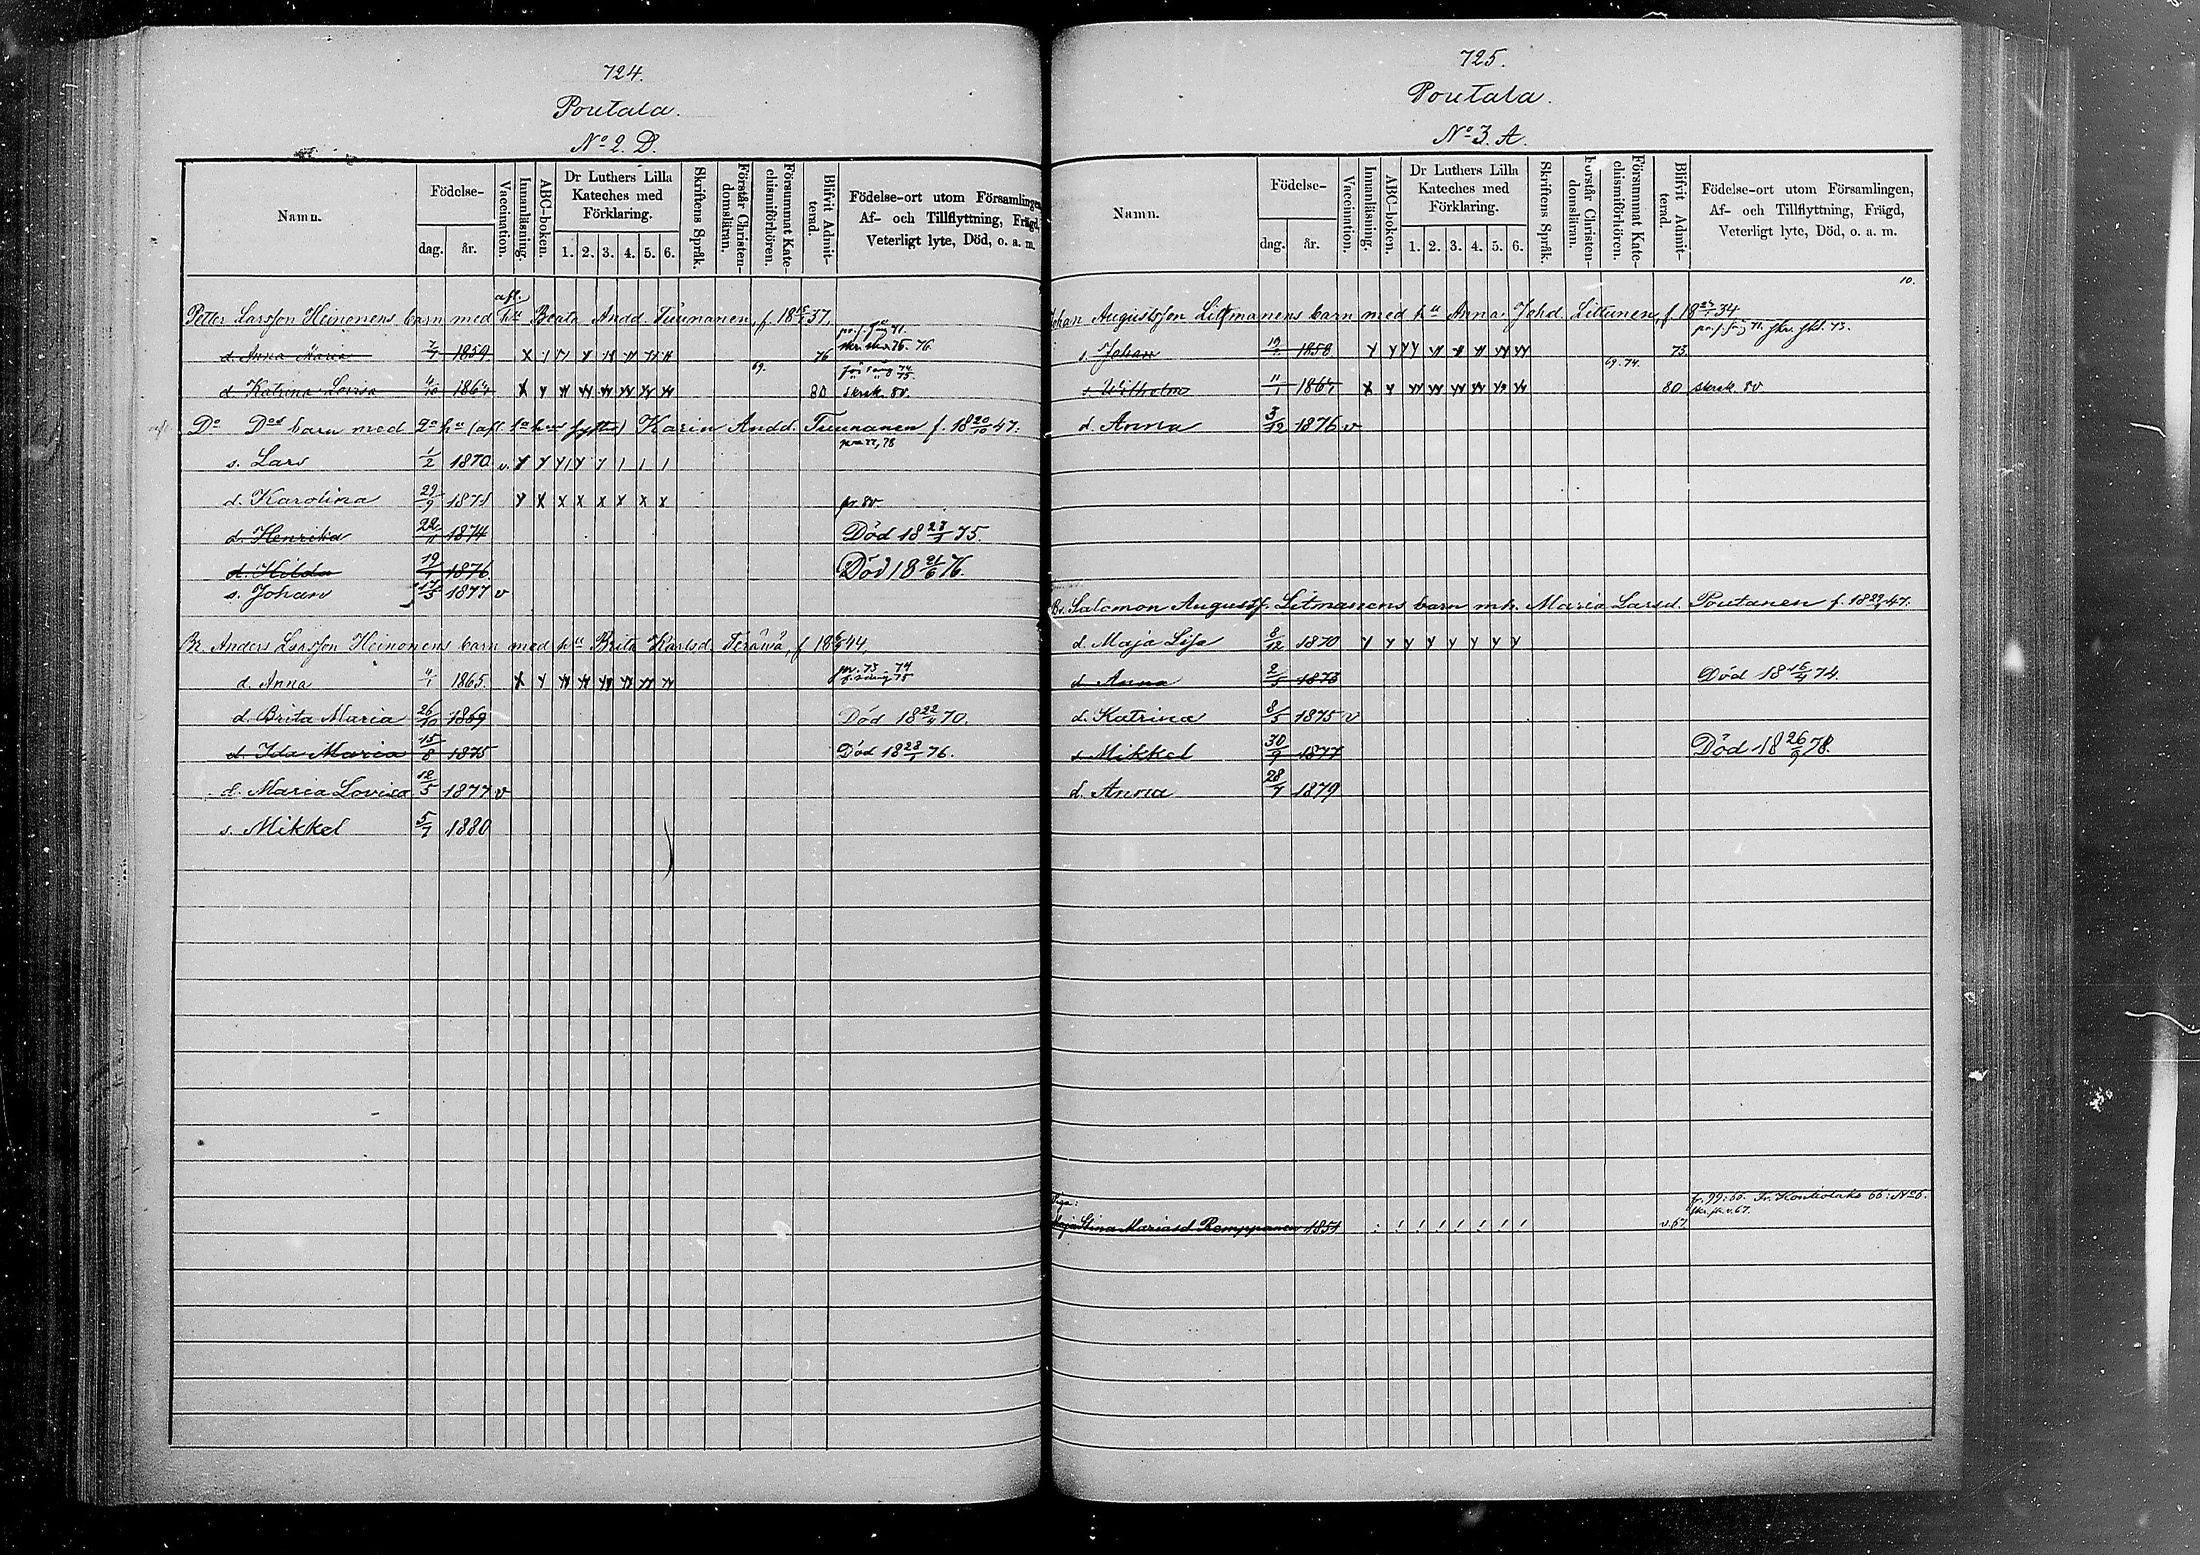 724.
Poutala.
No 2. D.
Namn.
Födelse-
dag. år.
Vaccination.
Innanläsning.
ABC-boken.
Dr Luthers Lilla Kateches med Förklaring.
1. 2. 3. 4. 5. 6.
Skriftens Språk.
Förstår Christendomsläran.
Försummat Katechismiförhören.
Blifvit Admitterad.
Födelse-ort utom Församlingen,
Af- och Tillflyttning, Frägd,
Veterligt lyte, Död, o. a. m.
afl.
Petter Larsson Heinonens barn med hu Beata Andd. Tuunanen, f. 18 37.
d. Anna Maria 1859 76
69.
d. Katrina Lovisa 1864 80 skrek. 80.
Do Dos barn med 2a hu (afl. 1a hus syster) Karin Andd. Tuunanen f. 18 20/10 47.
s. Lars 1/2 1870 v.
d. Karolina 29/9 1871 pr. 80
d. Henrika 22/11 1874 Död 18 75.
d. Hilda 19/1 1876 Död 18 21/6 76.
s. Johan 17/5 1877 v
Br. Anders Larsson Heinonens barn med hu Brita Karlsd. Teräwä, f 18 44.
d. Anna 1865.
d. Brita Maria 26/10 1869 Död 18 22/4 70.
d. Ida Maria 15/8 1875 Död 18 28/1 76.
d. Maria Lovisa 12/5 1877 v
s. Mikkel 5/7 1880
725.
Poutala.
No 3. A.
Namn.
Födelse-
dag. år.
Vaccination.
Innanläsning.
ABC-boken.
Dr Luthers Lilla Kateches med Förklaring.
1. 2. 3. 4. 5. 6.
Skriftens Språk.
Förstår Christendomsläran.
Försummat Katechismiförhören.
Blifvit Admitterad.
Födelse-ort utom Församlingen,
Af- och Tillflyttning, Frägd,
Veterligt lyte, Död, o. a. m.
10.
Johan Augustsson Litmanens barn med hu Anna Johd. Littunen, f. 18 34
s. Johan 1858 73.
69. 74.
s. Wilhelm 1864 80 skrek 80
d. Anna 3/12 1876 v
Br. Salomon Augustsf. Litmanens barn m. h. Maria Larsd. Poutanen f. 18 47.
d. Maja Lisa 8/12 1870
d. Anna 2/3 1873 Död 18 74.
d. Katrina 8/5 1875 v
s. Mikkel 30/9 1877 Död 18 26/9 78.
d. Anna 28/7 1879
Piga:
fr. 99: 60. Fr. Kontiolaks 66: No 6.
Maja Stina Mariasd Remppanen 1851 v. 67.